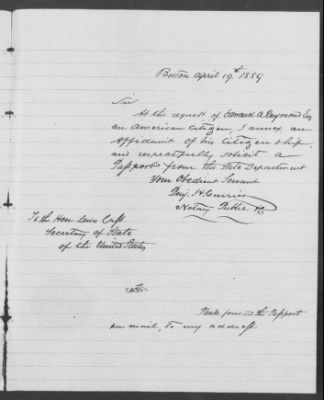 Boston April 19th 1859
Sir
At the request of Edward A. Raymond Esq
an American Citizen, I annex an
Affidavit of his Citizenship,
and respectfully solicit a
Passport from the State Department
Your Obedient Servant
Benj. H. Currier
Notary Public
To the Hon Lewis Cass
Secretary of State
of the United States
the Passport
mail, to my address.